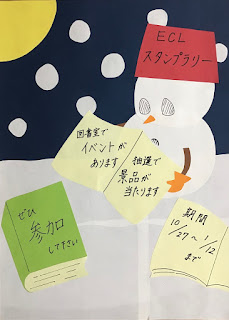 ECL
スタンプラリー
図書室で
イベントが
あります
抽選で
景品が
当たります
ぜひ
参加
して下さい
期間
10/27～1/12
まで